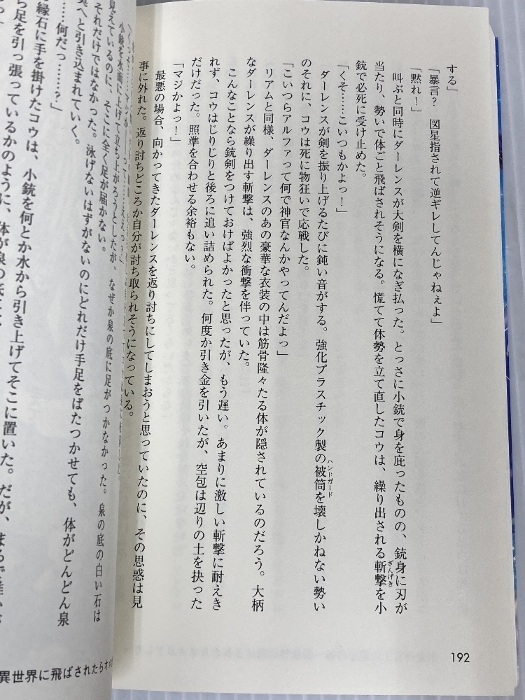 する」
「暴言？　図星指されて逆ギレしてんじゃねぇよ」
「黙れ！」
　叫ぶと同時にダーレンスが大剣を横になぎ払った。とっさに小銃で身を庇ったものの、銃身に刃が
当たり、勢いで体ごと飛ばされそうになる。慌てて体勢を立て直したコウは、繰り出される斬撃を小
ざんげき
銃で必死に受け止めた。
「くそ……こいつもかよっ！」
　ダーレンスが剣を振り上げるたびに鈍い音がする。強化プラスチック製の被筒を壊しかねない勢い
ハンドガード
のそれに、コウは死に物狂いで応戦した。
「こいつらアルファって何で神官なんかやってんだよっ」
　リアムと同様、ダーレンスのあの豪華な衣装の中は筋骨隆々たる体が隠されているのだろう。大柄
なダーレンスが繰り出す斬撃は、強烈な衝撃を伴っていた。
　こんなことなら銃剣をつけておけばよかったと思ったが、もう遅い。あまりに激しい斬撃に耐えき
れず、コウはじりじりと後ろに追い詰められた。何度か引き金を引いたが、空包は辺りの土を抉った
だけだった。照準を合わせる余裕もない。
「マジかよっ！」
　最悪の場合、向かってきたダーレンスを返り討ちにしてしまおうと思っていたのに、その思惑は見
事に外れた。返り討ちどころか自分が討ち取られそうになっている。
192
小銃を水面に上げて立ち上がろうとしたが、なぜか泉の底に足がつかなかった。泉の底の白い石は
見えているのに、そこに全く足が届かない。
それだけではなかった。泳げないはずがないのにどれだけ手足をばたつかせても、体がどんどん泉
へと引き込まれていく。
……何だっ……？」
縁石に手を掛けたコウは、小銃を何とか水から引き上げてそこに置いた。だが、まるで
ら足を引っ張っているかのように、体が泉の
異世界に飛ばされたら